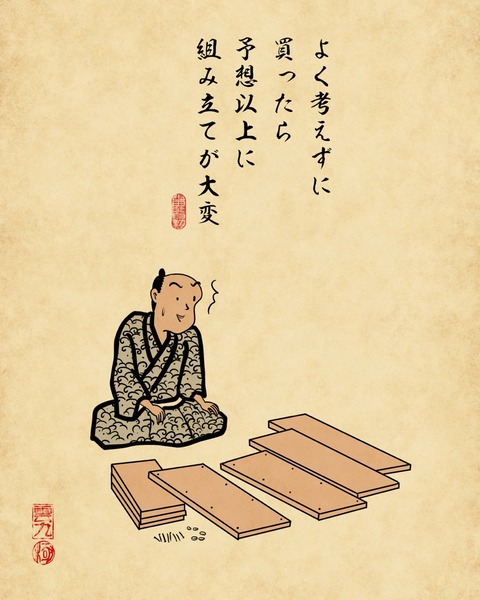 よく考えずに
買ったら
予想以上に
組み立てが大変